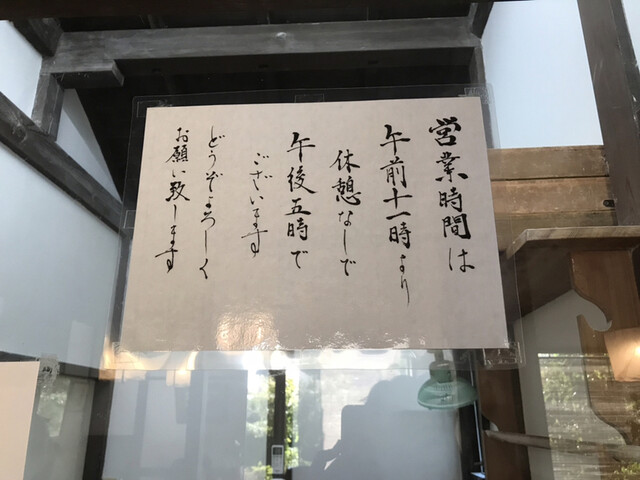 営業時間は
午前十一時より
休憩なしで
午後五時で
ございます
どうぞよろしく
お願い致します